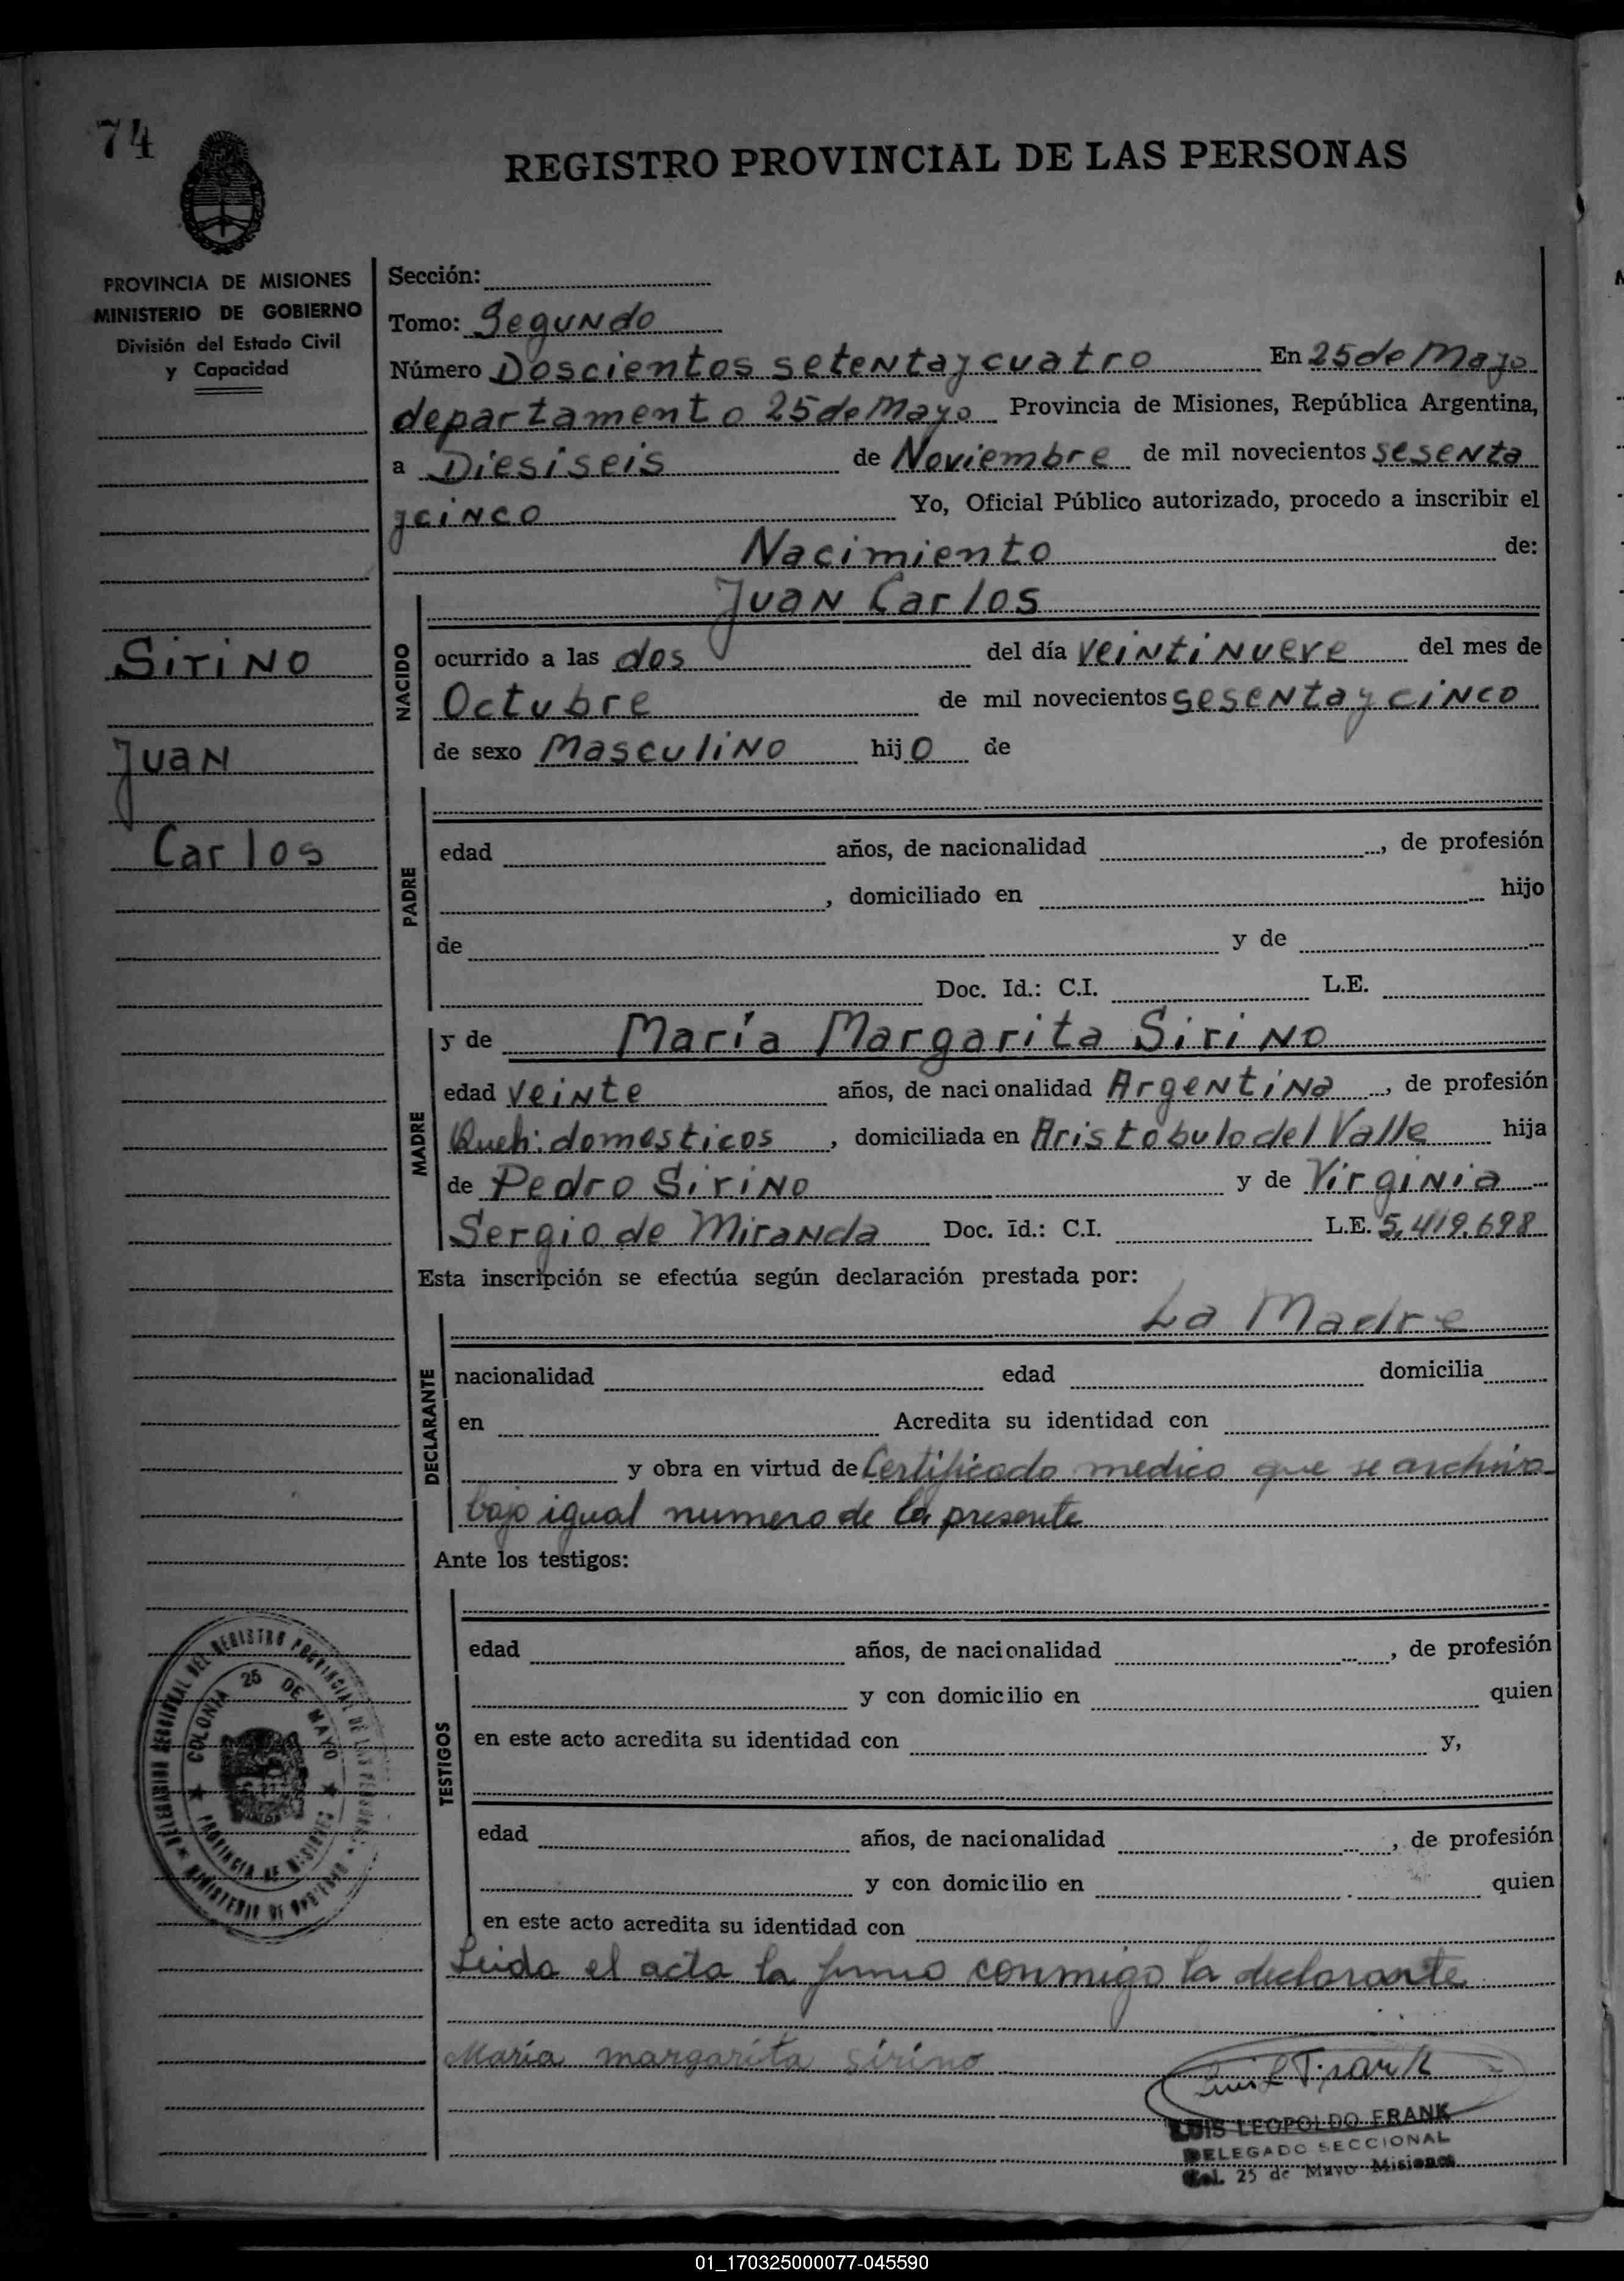 74
REGISTRO PROVINCIAL DE LAS PERSONAS
PROVINCIA DE MISIONES
MINISTERIO DE GOBIERNO
División del Estado Civil
y Capacidad
Sirino
Juan
Carlos
Sección:
Tomo: Segundo
Número Doscientos setenta y cuatro En 25 de Mayo
departamento 25 de Mayo Provincia de Misiones, República Argentina,
a Diesiseis de Noviembre de mil novecientos sesenta
y cinco Yo, Oficial Público autorizado, procedo a inscribir el
Nacimiento de:
NACIDO
Juan Carlos
ocurrido a las dos del día veintinueve del mes de
Octubre de mil novecientos sesenta y cinco
de sexo Masculino hijo de
PADRE
edad años, de nacionalidad , de profesión
, domiciliado en hijo
de y de
Doc. Id.: C.I. L.E.
MADRE
y de María Margarita Sirino
edad veinte años, de nacionalidad Argentina , de profesión
Queh: domesticos , domiciliada en Aristobulo del Valle hija
de Pedro Sirino y de Virginia
Sergio de Miranda Doc. Id.: C.I. L.E. 5.419.698
Esta inscripción se efectúa según declaración prestada por:
DECLARANTE
La Madre
nacionalidad edad domicilia
en Acredita su identidad con
y obra en virtud de Certificado medico que se archiva
bajo igual numero de la presente
Ante los testigos:
TESTIGOS
edad años, de nacionalidad , de profesión
y con domicilio en quien
en este acto acredita su identidad con y,
edad años, de nacionalidad , de profesión
y con domicilio en quien
en este acto acredita su identidad con
Leida el acta la firmo conmigo la declarante
María margarita sirino
Luis L Frank
LUIS LEOPOLDO FRANK
DELEGADO SECCIONAL
Col. 25 de Mayo Misiones
DELEGACION SECCIONAL DEL REGISTRO PROVINCIAL DE LAS PERSONAS
MINISTERIO DE GOBIERNO
COLONIA 25 DE MAYO
PROVINCIA DE MISIONES
01_170325000077-045590